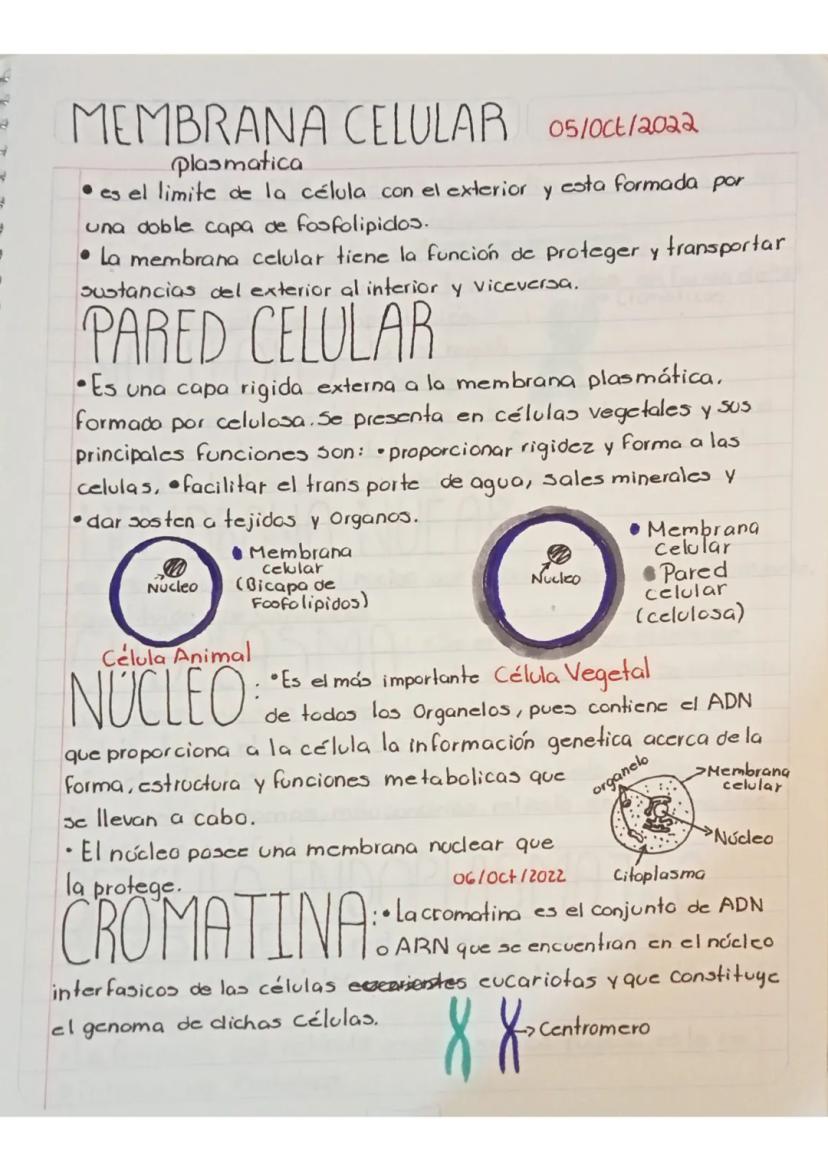 MEMBRANA CELULAR 05/Oct/2022
plasmatica
• es el limite de la célula con el exterior y esta formada por
una doble capa de fosfolipidos.
• La membrana celular tiene la función de proteger y transportar
sustancias del exterior al interior y viceversa.
PARED CELULAR
• Es una capa rigida externa a la membrana plasmática,
formada por celulosa. Se presenta en células vegetales y sus
principales funciones son: • proporcionar rigidez y forma a las
celulas, • facilitar el transporte de agua, sales minerales y
• dar sosten a tejidos y Organos.
Núcleo
• Membrana
celular
(Bicapa de
Fosfolípidos)
Célula Animal
Núcleo
• Membrana
celular
• Pared
celular
(celulosa)
Célula Vegetal
NÚCLEO: • Es el más importante
de todos los Organelos, pues contiene el ADN
que proporciona a la célula la información genetica acerca de la
forma, estructura y funciones metabolicas que
se llevan a cabo.
• El núcleo posee una membrana nuclear que
la protege.
organelo
Membrana
celular
Núcleo
Citoplasma
06/Oct/2022
CROMATINA: • La cromatina es el conjunto de ADN
o ARN que se encuentran en el núcleo
interfasicos de las células eucariotas y que constituye
el genoma de dichas células.
Centromero